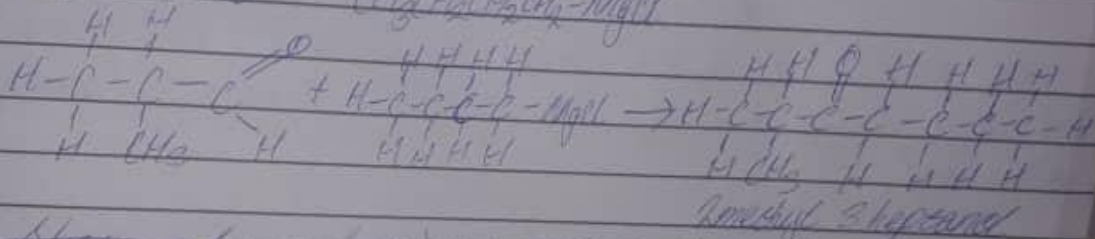 CH₂CH₂-MgCl
H H O H H H H H H O H H H H
H-C-C-C + H-C-C-C-C-MgCl → H-C-C-C-C-C-C-C-H
H CH₃ H H H H H H CH₃ H H H H
2methyl 3heptanol